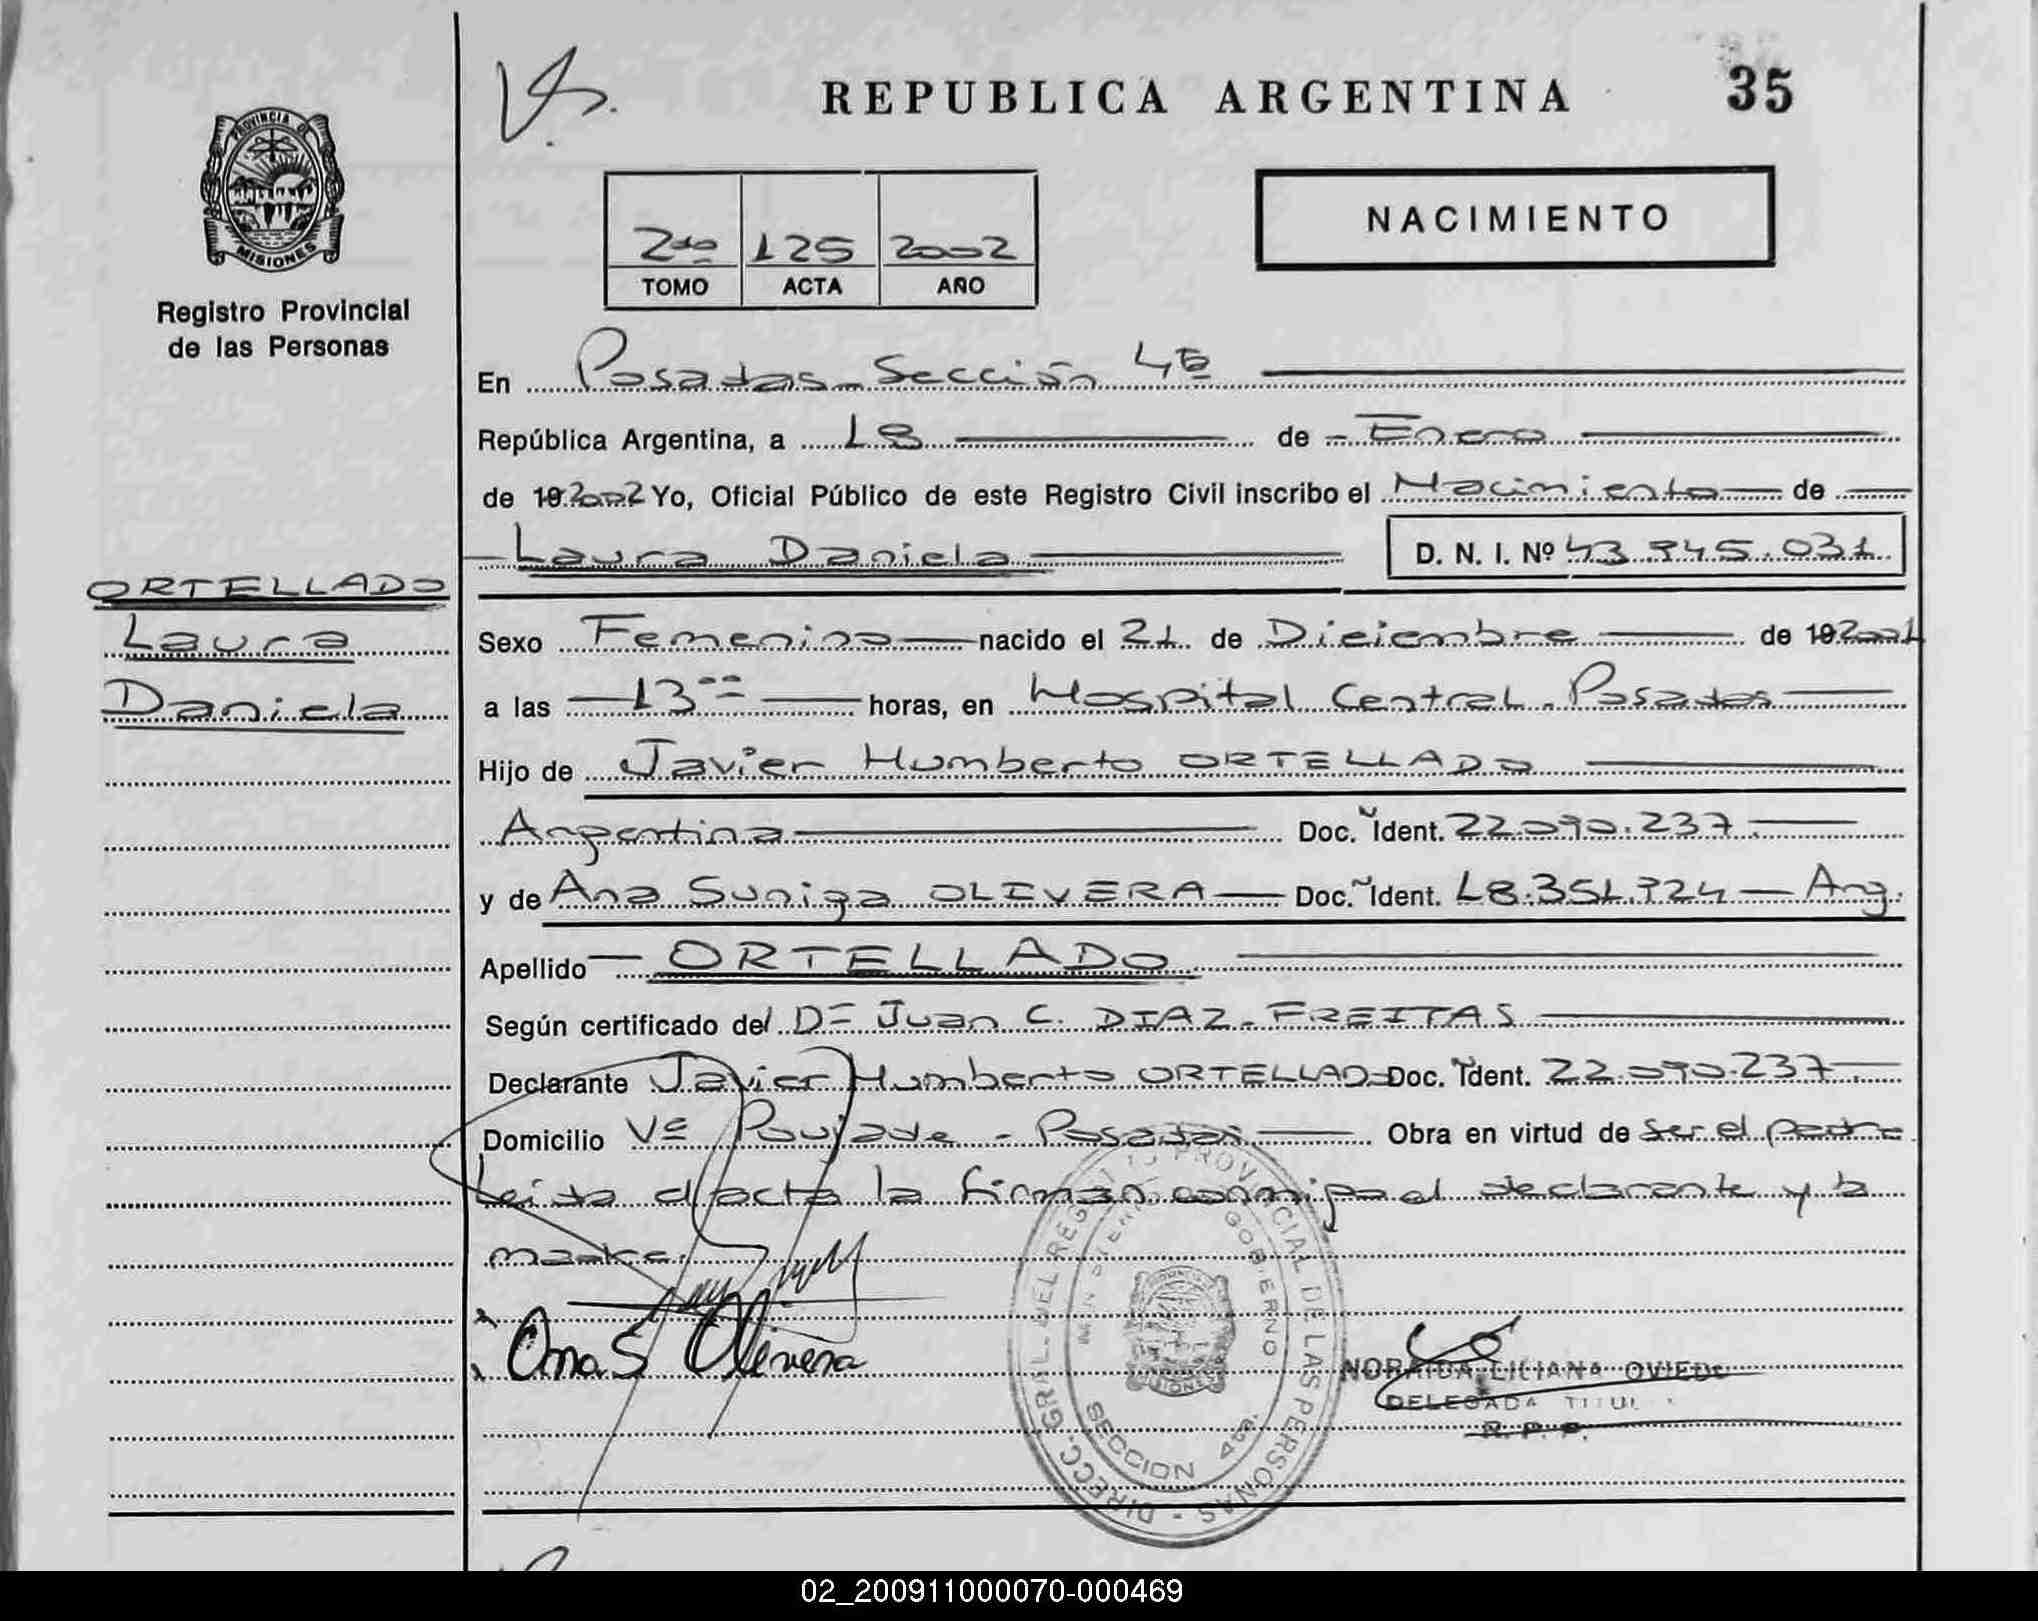 Vs.
REPUBLICA ARGENTINA 35
PROVINCIA DE MISIONES
2do 125 2002
TOMO ACTA AÑO
NACIMIENTO
Registro Provincial
de las Personas
En Posadas Sección 4ta
República Argentina, a 18 de Enero
de 19 2002 Yo, Oficial Público de este Registro Civil inscribo el Nacimiento de
Laura Daniela D. N. I. Nº 43.945.031
ORTELLADO
Laura
Daniela
Sexo Femenino nacido el 21 de Diciembre de 19 2001
a las 13 horas, en Hospital Central. Posadas
Hijo de Javier Humberto ORTELLADO
Argentina Doc. Ident. 22.090.237
y de Ana Suniga OLIVERA Doc. Ident. 18.351.724 Arg.
Apellido ORTELLADO
Según certificado del Dr Juan C. DIAZ FREITAS
Declarante Javier Humberto ORTELLADO Doc. Ident. 22.090.237
Domicilio Vª Poujade - Posadas Obra en virtud de ser el padre
Leída el acta la firman conmigo el declarante y la
madre.
Ana S Olivera
DIRECC. GRAL. DEL REGISTRO PROVINCIAL DE LAS PERSONAS
GOBIERNO
SECCION 4ta.
MISIONES
NORAIDA LILIANA OVIEDO
DELEGADA TITUL
R. P. P.
02_200911000070-000469